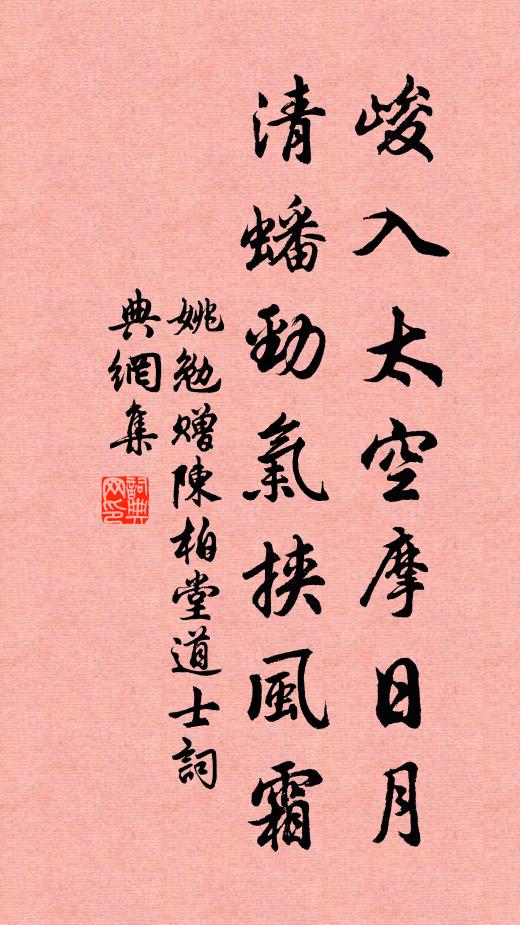 峻入太空摩日月
清蟠勁氣挾風霜
姚勉贈陳柏堂道士詞
典網集
詞典
网印